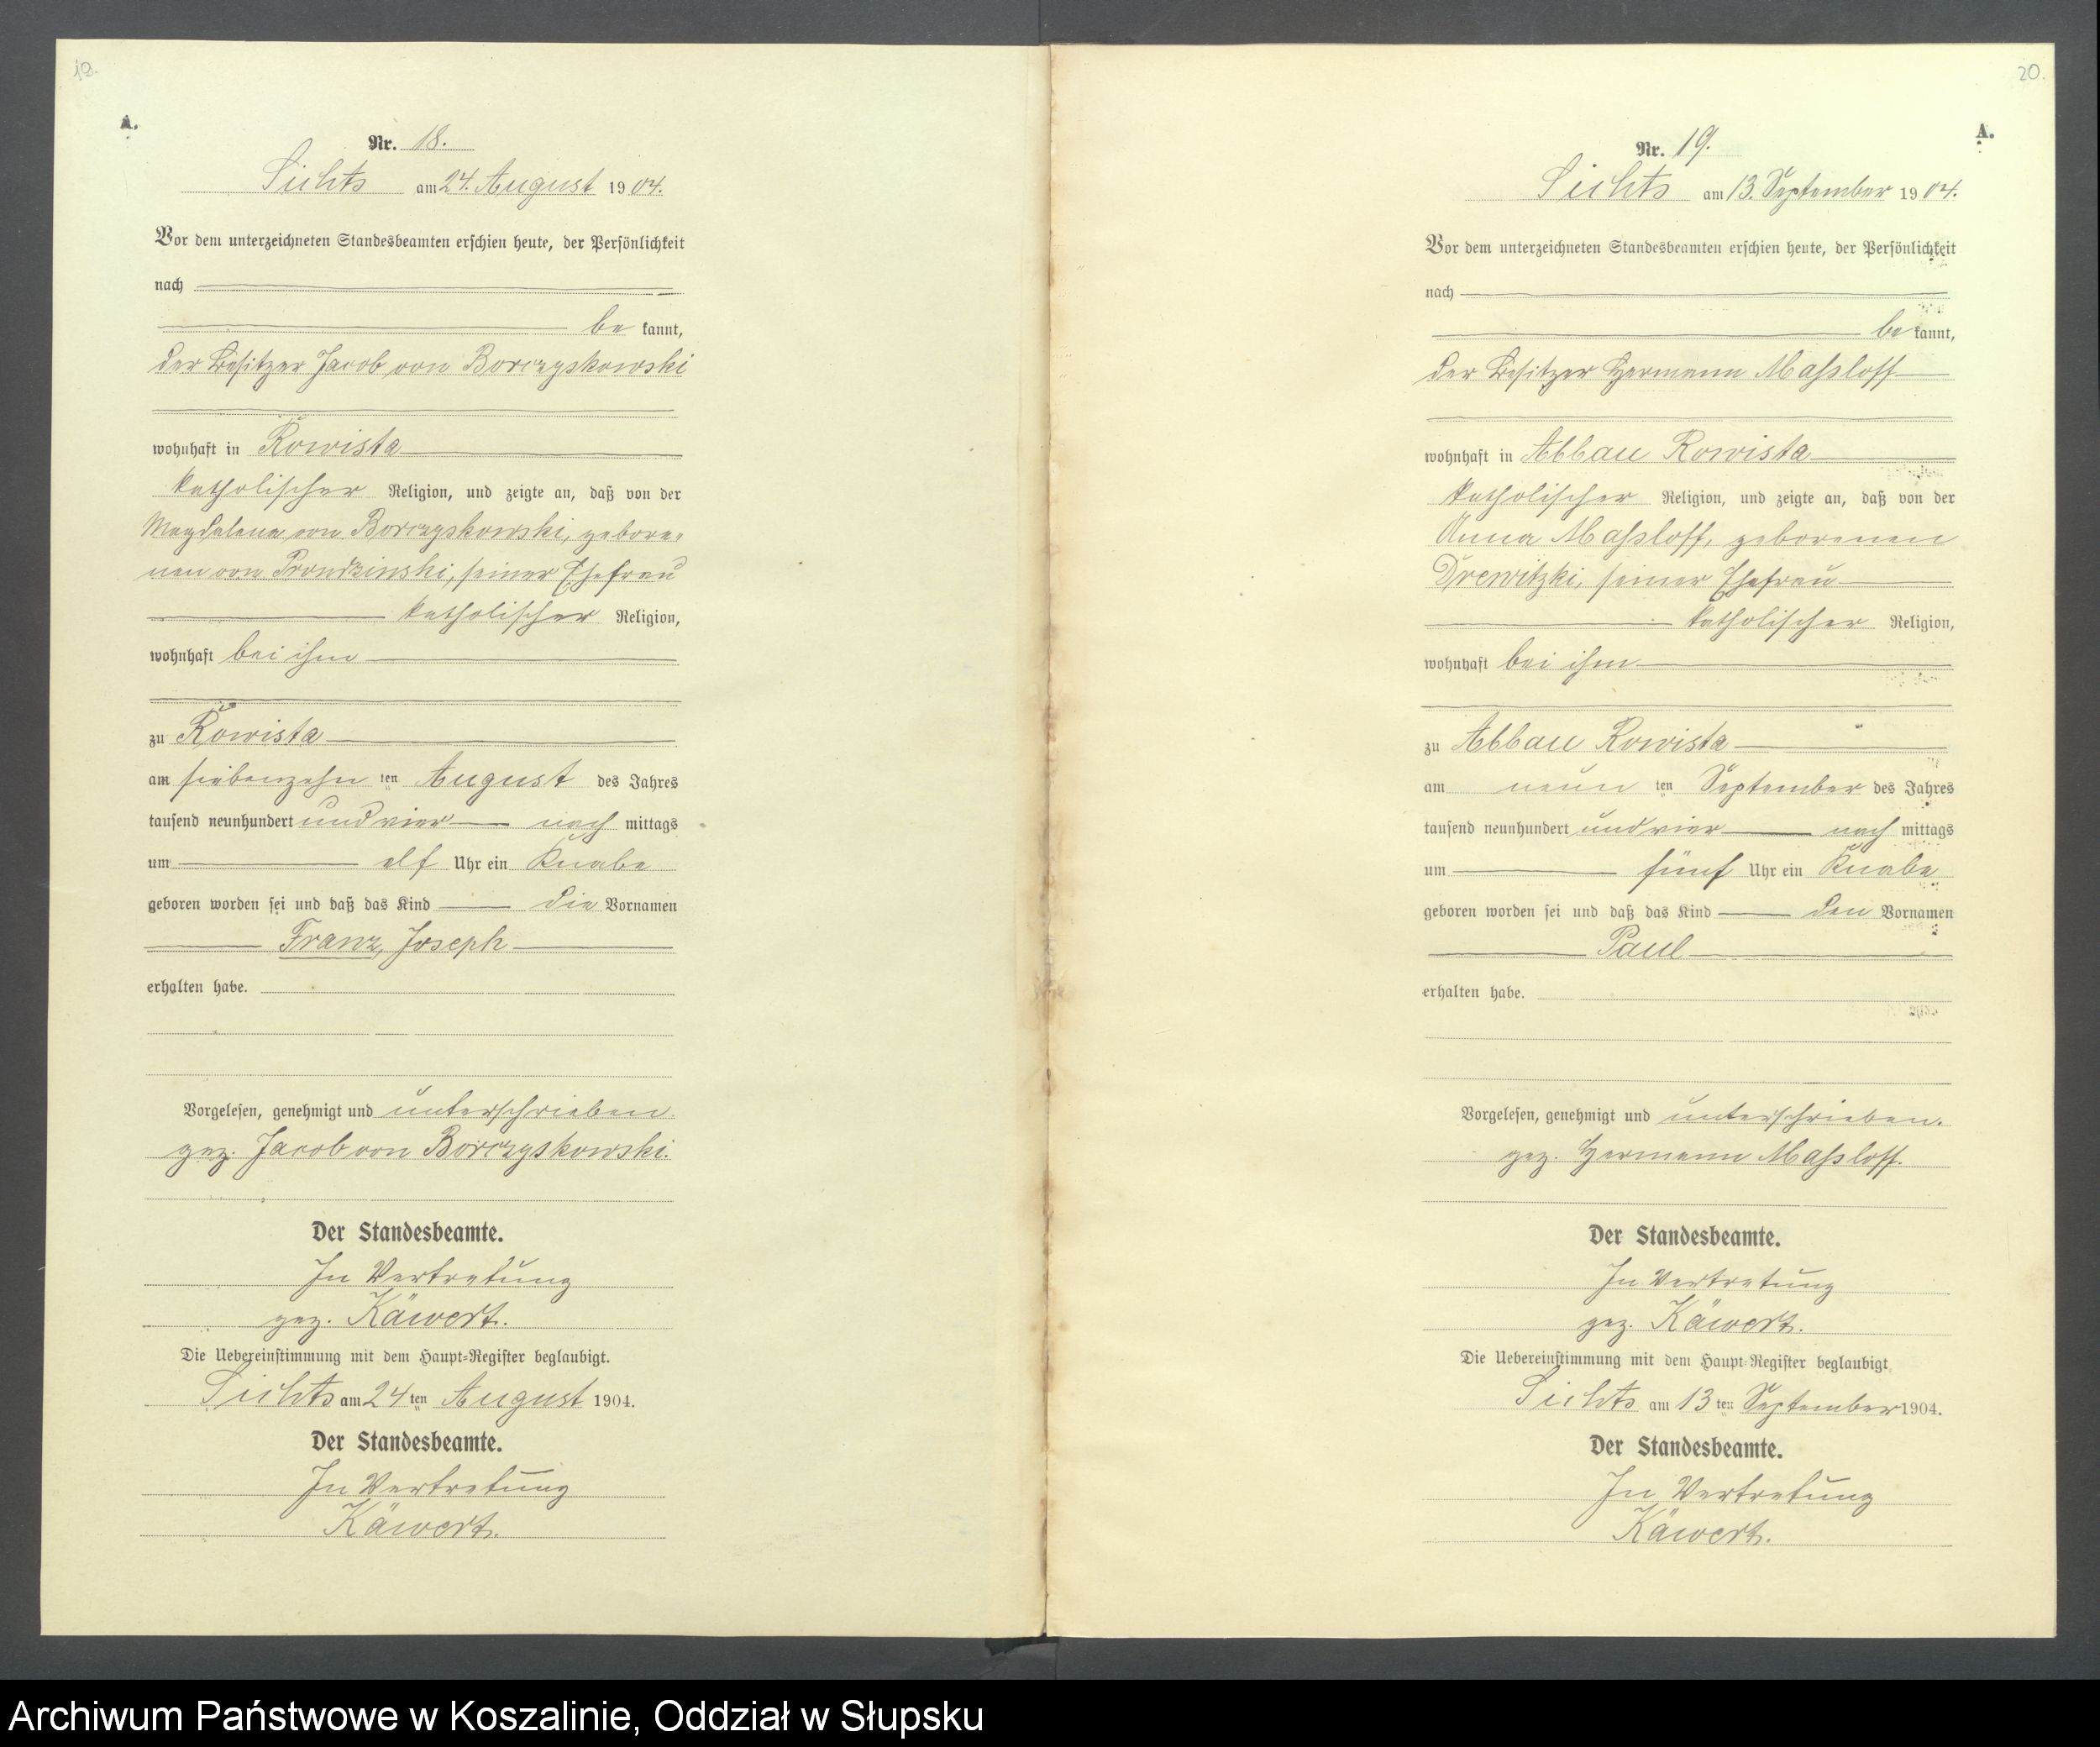 19.
A.
Nr. 18.
Lichts am 24. August 1904.
Vor dem unterzeichneten Standesbeamten erschien heute, der Persönlichkeit
nach
be kannt,
der Besitzer Jacob von Borczyskowski
wohnhaft in Rowista
katholischer Religion, und zeigte an, daß von der
Magdalena von Borczyskowski, gebore-
nen von Prondzinski, seiner Ehefrau
katholischer Religion,
wohnhaft bei ihm
zu Rowista
am siebenzehn ten August des Jahres
tausend neunhundert und vier nach mittags
um elf Uhr ein Knabe
geboren worden sei und daß das Kind die Vornamen
Franz, Joseph
erhalten habe.
Vorgelesen, genehmigt und unterschrieben.
gez. Jacob von Borczyskowski.
Der Standesbeamte.
In Vertretung
gez. Käwert.
Die Uebereinstimmung mit dem Haupt-Register beglaubigt.
Lichts am 24 ten August 1904.
Der Standesbeamte.
In Vertretung
Käwert.
20.
A.
Nr. 19.
Lichts am 13. September 1904.
Vor dem unterzeichneten Standesbeamten erschien heute, der Persönlichkeit
nach
be kannt,
der Besitzer Hermann Maßloff
wohnhaft in Abbau Rowista
katholischer Religion, und zeigte an, daß von der
Anna Maßloff, geborenen
Drewitzki, seiner Ehefrau
katholischer Religion,
wohnhaft bei ihm
zu Abbau Rowista
am neun ten September des Jahres
tausend neunhundert und vier nach mittags
um fünf Uhr ein Knabe
geboren worden sei und daß das Kind den Vornamen
Paul
erhalten habe.
Vorgelesen, genehmigt und unterschrieben.
gez. Hermann Maßloff.
Der Standesbeamte.
In Vertretung
gez. Käwert.
Die Uebereinstimmung mit dem Haupt-Register beglaubigt
Lichts am 13 ten September 1904.
Der Standesbeamte.
In Vertretung
Käwert.
Archiwum Państwowe w Koszalinie, Oddział w Słupsku